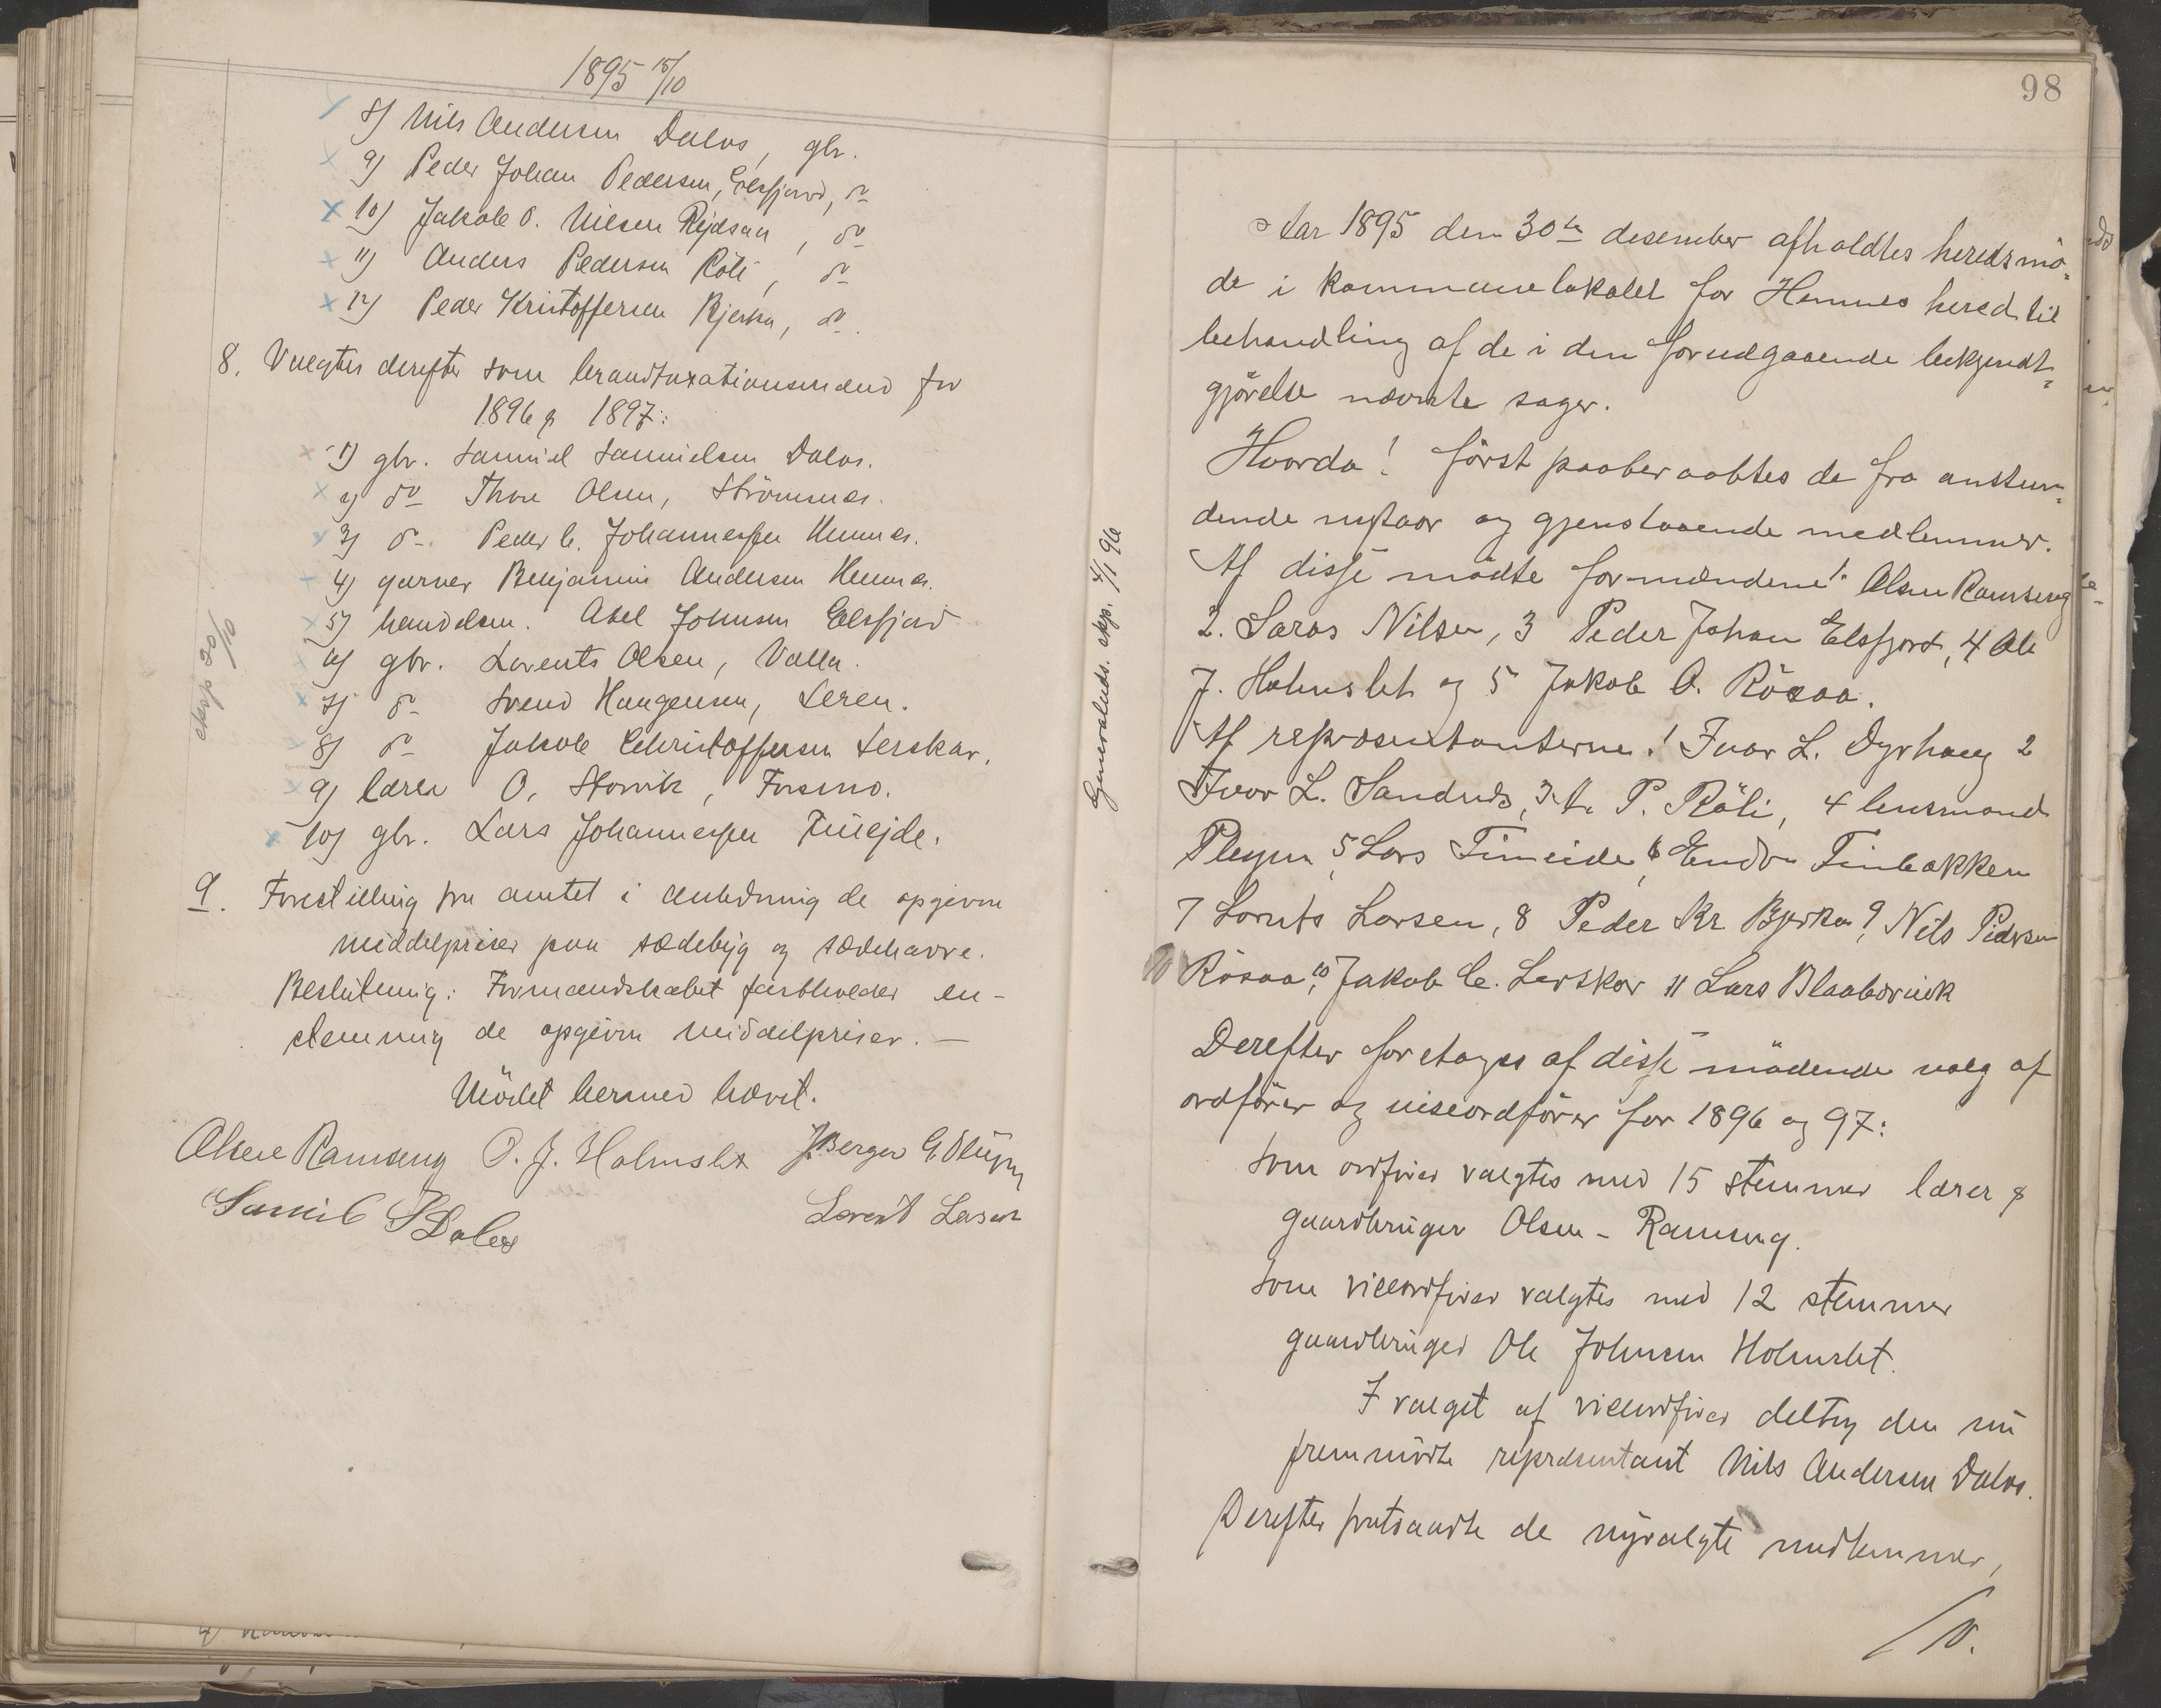 1895 15/10
8) Nils Andersen Dalos, gbr.
9) Peder Johan Pedersen, Elsfjord, do
10) Jakob O. Nilsen Røjdsaa, do
11) Anders Pedersen Röli, do
12) Peder Kristoffersen Bjerka, do.
8. Valgtes derefter som brandtaxationsmænd for
1896 & 1897:
1) gbr. Samuel Samuelsen Dalos.
2) do Thore Olsen, Strömmes.
3) do Peder C. Johannessen Hemnes.
4) garver Benjamin Andersen Hemnes.
5) handelsm. Abel Johnsen Elsfjord
6) gbr. Lorents Olsen, Valla.
7) do Svend Haagensen, Leren.
8) do Jakob Christoffersen Lerskar.
9) lærer O. Storvik, Forsmo.
10) gbr. Lars Johannessen Finejde.
eksp 20/10
9. Forestilling fra amtet i anledning de opgivne
middelpriser paa sædebyg og sædehavre.
Beslutning: Formandskabet fastholder en-
stemmig de opgivne middelpriser. —
Mödet hermed hævet.
Olsen Ramseng O. J. Holmslet J. Berger G. Pleym
Samuel S Dalos Lorent Larsen
98
Aar 1895 den 30te desember afholdtes heredsmö-
de i kommunelokalet for Hemnes hered til
behandling af de i den forudgaaende bekjendt-
gjörelse nævnte sager.
Hvorda! först paaberaabtes de fra anstun-
dende nytaar og gjenstaaende medlemmer.
Af disse mödte formændene 1. Olsen Ramseng
2. Saras Nilsen, 3 Peder Johan Elsfjord, 4 Ole
J. Holmslet og 5 Jakob O. Rösaa.
Af repræsentanterne. 1 Ivar L. Dyrhaug 2
Ivar L. Sandnes, 3 A. P. Röli, 4 lensmand
Pleym, 5 Lars Fineide, 6 Endre Finbakken
7 Lornts Larsen, 8 Peder Kr Bjerka 9, Nils Pedersen
Rösaa, 10 Jakob C. Lerskar 11 Lars Blaabærvik
Derefter foretoges af disse mödende valg af
ordförer og viseordförer for 1896 og 97:
Som ordförer valgtes med 15 stemmer lærer &
gaardbruger Olsen-Ramseng.
Som viceordförer valgtes med 12 stemmer
gaardbruger Ole Johnsen Holmslet.
I valget af viceordförer deltog den nu
fremmödte repræsentant Nils Andersen Dalos.
Derefter fratraadte de nyvalgte medlemmer,
Generalieds. eksp. 4/1 96